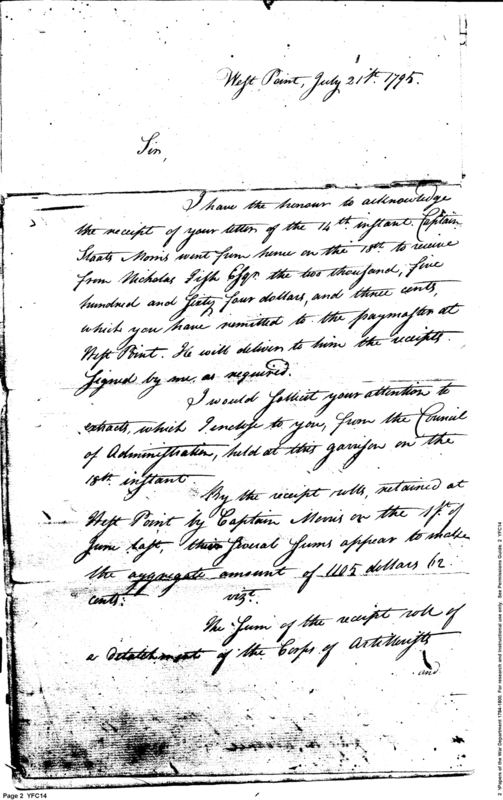 West Point, July 21st. 1795.
Sir,
I have the honour to acknowledge
the receipt of your letter of the 14th instant. Captain
Staats Morris went from hence on the 18th to receive
from Nicholas Fish Esqr. the two thousand, five
hundred and sixty four dollars, and three cents,
which you have remitted to the paymaster at
West Point. He will deliver to him the receipts
signed by me, as required.
I would sollicit your attention to
extracts, which I inclose to you, from the Council
of Administration, held at this garrison on the
18th instant.
By the receipt rolls, retained at
West Point by Captain Morris on the 1st. of
June last, their several sums appear to make
the aggregate amount of 1105 dollars 62
cents: vizt.
The sum of the receipt roll of
a detatchment of the Corps of Artillerists
and
Page 2 YFC14
Papers of the War Department 1784-1800. For research and instructional use only. See Permissions Guide. 2 YFC14